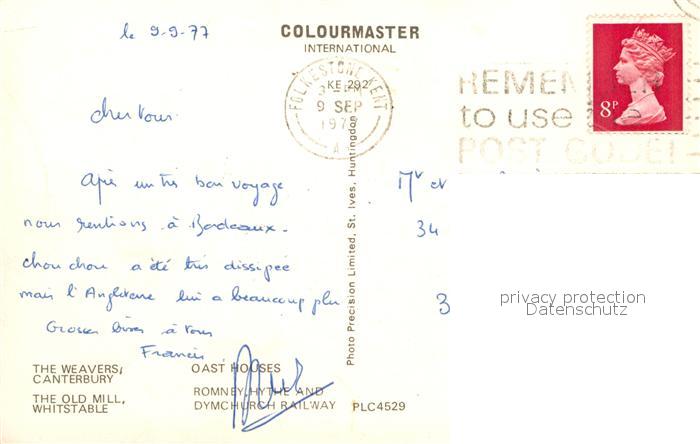 le 9-9-77
COLOURMASTER
INTERNATIONAL
KE 292
FOLKESTONE KENT
9 SEP
197
A
REMEM
to use
POST CODE!
8P
cher tous
Après un très bon voyage
nous rentrons à Bordeaux.
chouchou a été très dissipée
mais l'Angleterre lui a beaucoup plu
Grosses bises à tous
Francis
Mr et
34
3
privacy protection
Datenschutz
Photo Precision Limited, St. Ives, Huntingdon
THE WEAVERS,
CANTERBURY
THE OLD MILL,
WHITSTABLE
OAST HOUSES
ROMNEY, HYTHE AND
DYMCHURCH RAILWAY
PLC4529